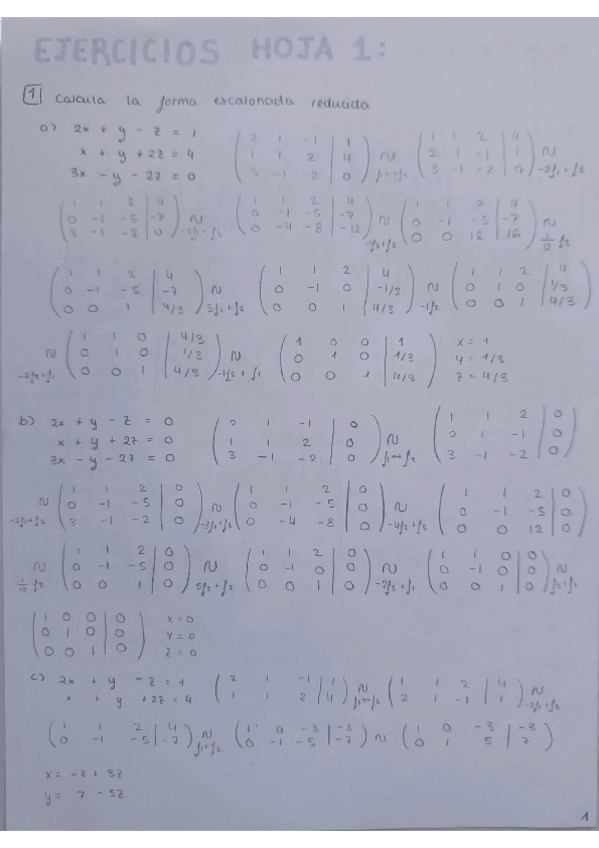 EJERCICIOS HOJA 1:
1 Calcula la forma escalonada reducida
a) 2x + y - z = 1
x + y + 2z = 4
3x - y - 2z = 0
( 2 1 -1 | 1
1 1 2 | 4
3 -1 -2 | 0 ) ~ f1↔f2
( 1 1 2 | 4
2 1 -1 | 1
3 -1 -2 | 0 ) ~ -2f1+f2
( 1 1 2 | 4
0 -1 -5 | -7
3 -1 -2 | 0 ) ~ -3f1+f2
( 1 1 2 | 4
0 -1 -5 | -7
0 -4 -8 | -12 ) ~
( 1 1 2 | 4
0 -1 -5 | -7
0 0 12 | 16 ) ~ 1/12 f3
( 1 1 2 | 4
0 -1 -5 | -7
0 0 1 | 4/3 ) ~ 5f3+f2
( 1 1 2 | 4
0 -1 0 | -1/3
0 0 1 | 4/3 ) ~ -1f2
( 1 1 2 | 4
0 1 0 | 1/3
0 0 1 | 4/3 )
~ -2f3+f1 ( 1 1 0 | 4/3
0 1 0 | 1/3
0 0 1 | 4/3 ) ~ -1f2+f1
( 1 0 0 | 1
0 1 0 | 1/3
0 0 1 | 4/3 )
x = 1
y = 1/3
z = 4/3
b) 2x + y - z = 0
x + y + 2z = 0
3x - y - 2z = 0
( 2 1 -1 | 0
1 1 2 | 0
3 -1 -2 | 0 ) ~ f1↔f2
( 1 1 2 | 0
2 1 -1 | 0
3 -1 -2 | 0 )
~ -2f1+f2 ( 1 1 2 | 0
0 -1 -5 | 0
3 -1 -2 | 0 ) ~ -3f1+f3
( 1 1 2 | 0
0 -1 -5 | 0
0 -4 -8 | 0 ) ~ -4f2+f3
( 1 1 2 | 0
0 -1 -5 | 0
0 0 12 | 0 )
~ 1/12 f3 ( 1 1 2 | 0
0 -1 -5 | 0
0 0 1 | 0 ) ~ 5f3+f2
( 1 1 2 | 0
0 -1 0 | 0
0 0 1 | 0 ) ~ -2f3+f1
( 1 1 0 | 0
0 -1 0 | 0
0 0 1 | 0 ) ~ f2+f1
( 1 0 0 | 0
0 1 0 | 0
0 0 1 | 0 )
x = 0
y = 0
z = 0
c) 2x + y - z = 1
x + y + 2z = 4
( 2 1 -1 | 1
1 1 2 | 4 ) ~ f1↔f2
( 1 1 2 | 4
2 1 -1 | 1 ) ~ -2f1+f2
( 1 1 2 | 4
0 -1 -5 | -7 ) ~ f1+f2
( 1 0 -3 | -3
0 -1 -5 | -7 ) ~
( 1 0 -3 | -3
0 1 5 | 7 )
x = -3 + 3z
y = 7 - 5z
1